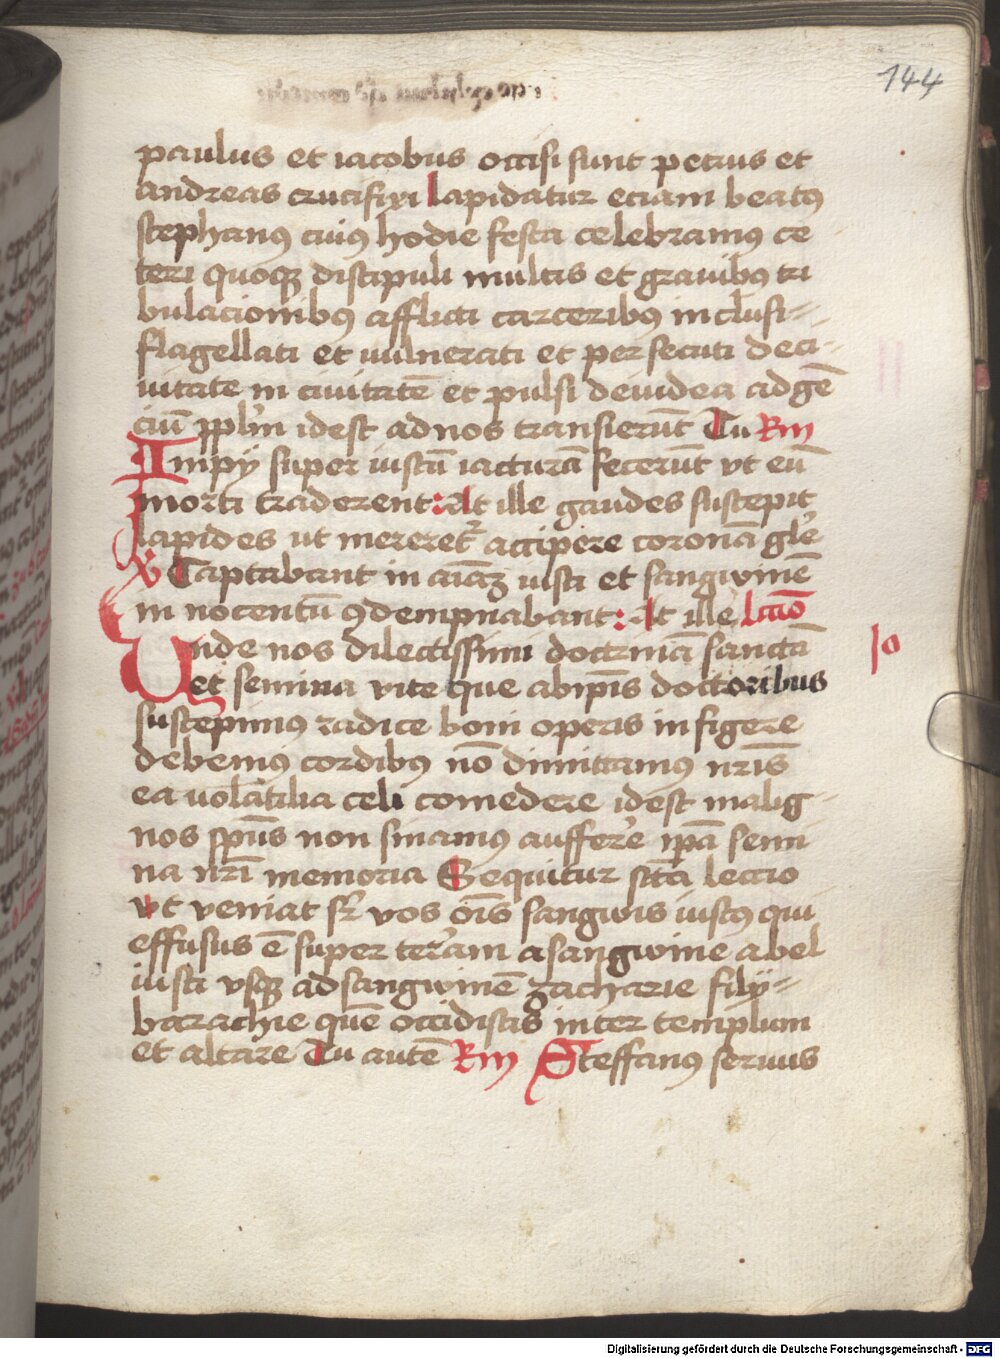 144
paulus et iacobus occisi sunt petrus et
andreas crucifixi lapidatur eciam beatꝰ
stephanꝰ cuiꝰ hodie festa celebramꝰ ce
teri quoqꝫ discipuli multis et grauibꝰ tri
bulacionibꝰ afflicti carceribꝰ inclusi
flagellati et uulnerati et persecuti de ci
uitate in ciuitatē et pulsi de iudea ad gē
ciū ppl̄m idest ad nos transierūt Tu Rm
Impy super iustū iacturā fecerūt vt eū
morti traderent: At ille gaudes suscepit
lapides ut mereret᷑ accipere coronā gl̄e
V Captabant in aīaꝫ iusti et sangwinē
in nocentū ꝯdempnabant: At ille Lc̄io
Unde nos dilectissimi doctrinā sanctā
et semina vite que ab ip̄is doctoribus
suscepimus radice boni operis in figere
debemꝰ cordibꝰ nō dimittamꝰ nr̄is
ea uolatilia celi comedere idest malig
nos sp̄us non sinamꝰ aufferre ip̄a semi
na nr̄i memoria Sequitur sc̄ta lectio
vt veniat sr̄ vos om̄is sangwis iustꝰ qui
effusus ē super terram a sangwine abel
iusti vsqꝫ ad sangwinē zacharie fily
barachie quē occidistis inter templum
et altare Tu autē Rm Steffanꝰ seruus
Ia
Digitalisierung gefördert durch die Deutsche Forschungsgemeinschaft - DFG